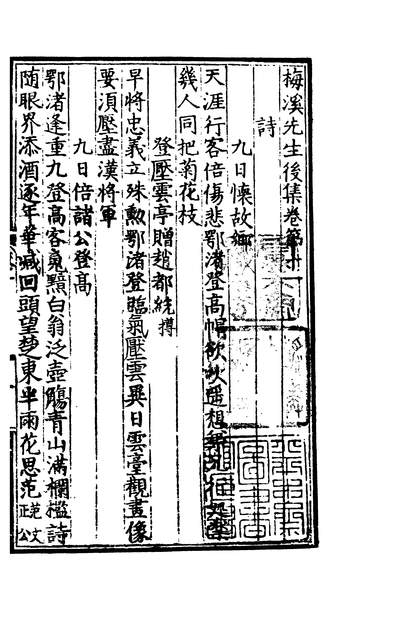 梅溪先生後集卷第十
詩
九日懷故鄉
天涯行客倍傷悲鄂渚登高帽欲吹遥想
幾人同把菊花枝
登壓雲亭贈趙都統撙
早將忠義立殊勲鄂渚登臨氣壓雲異日雲臺觀畫像
要須壓盡漢將軍
九日倍諸公登高
鄂渚逢重九登高客鬢黲白翁泛壺觴青山滿欄檻詩
随眼界添酒逐年華減回頭望楚東半雨花思范范文正公